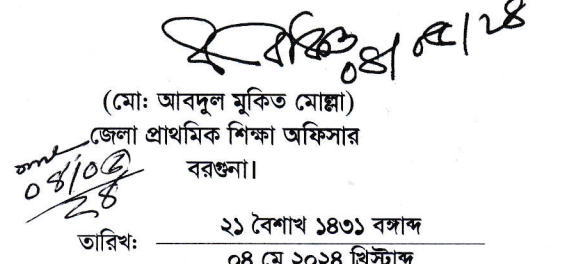 ০৪/০৫/২৪
(মো: আবদুল মুকিত মোল্লা)
জেলা প্রাথমিক শিক্ষা অফিসার
বরগুনা।
তারিখ:
২১ বৈশাখ ১৪৩১ বঙ্গাব্দ
০৪ মে ২০২৪ খ্রিস্টাব্দ